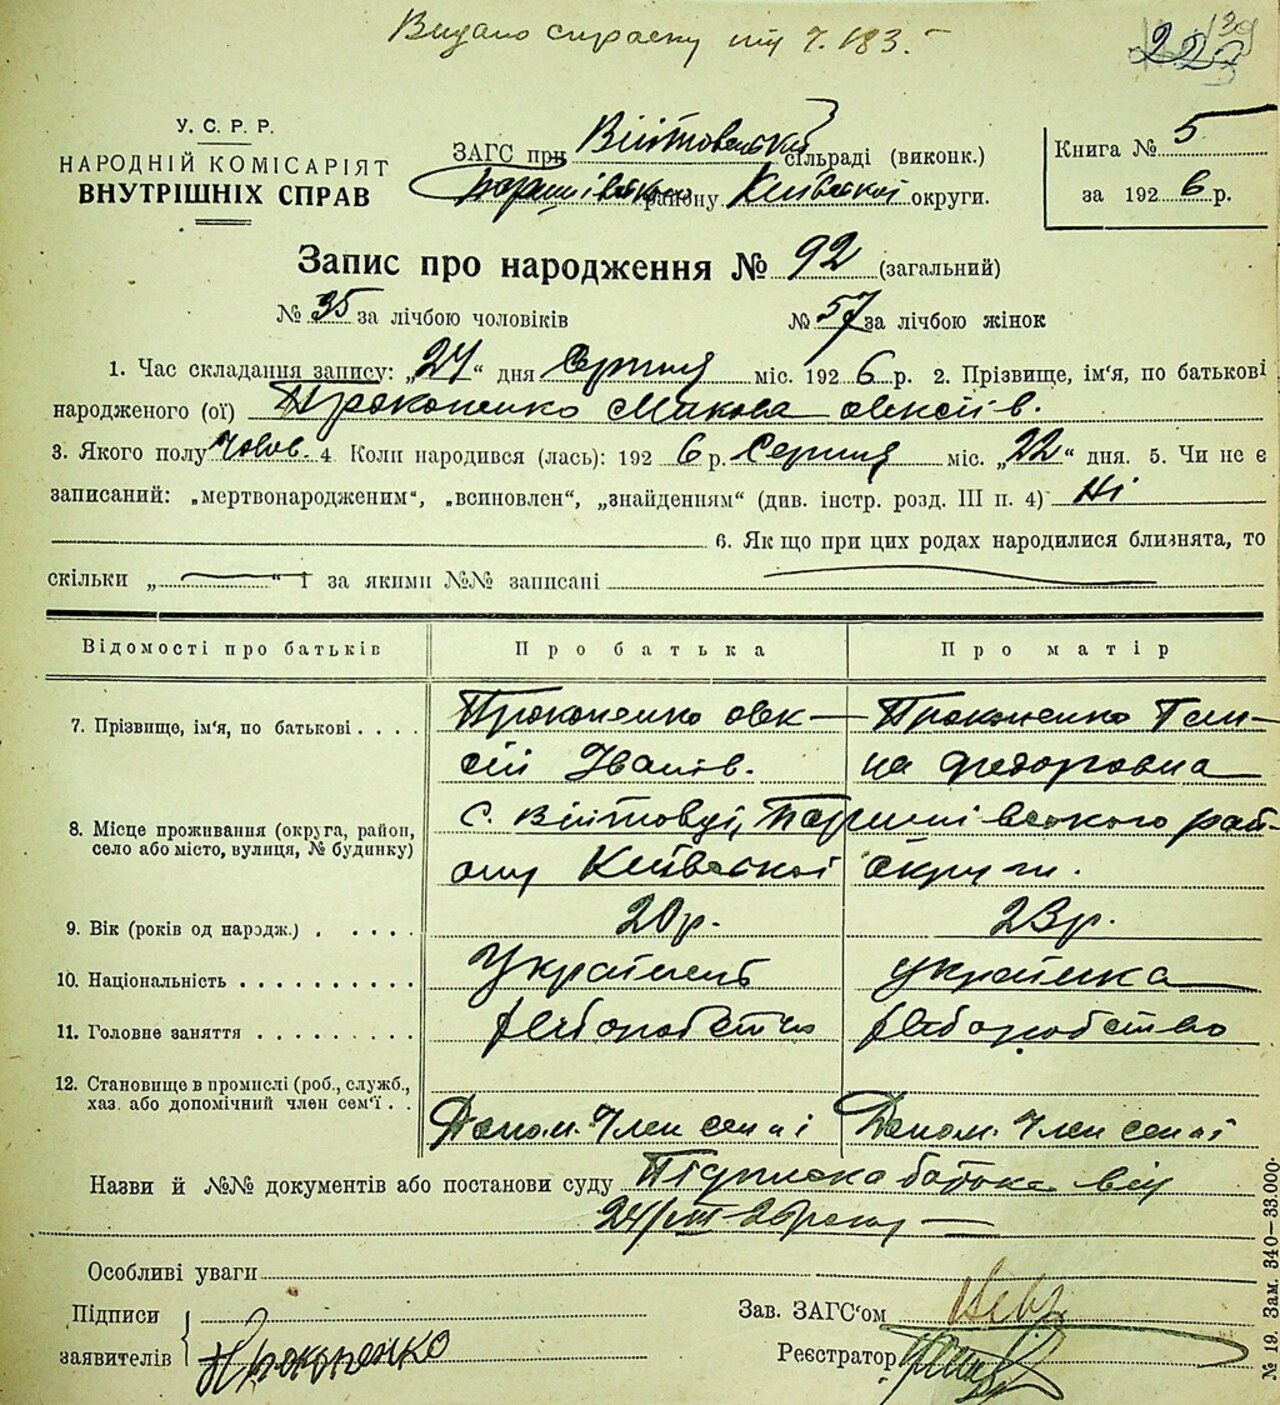 Видано справку під ч. 183.
223
У. С. Р. Р.
НАРОДНІЙ КОМІСАРІЯТ
ВНУТРІШНІХ СПРАВ
ЗАГС при Війтовецькій сільраді (виконк.)
району Київської округи.
Книга № 5
за 1926 р.
Запис про народження № 92 (загальний)
№ 35 за лічбою чоловіків № 57 за лічбою жінок
1. Час складання запису: „24“ дня Серпня міс. 1926 р. 2. Прізвище, ім'я, по батькові
народженого (ої) Прокопенко Микола Олексіїв.
3. Якого полу Чолов. 4 Коли народився (лась): 1926 р. Серпня міс. „22“ дня. 5. Чи не є
записаний: „мертвонародженим“, „всиновлен“, „знайденням“ (див. інстр. розд. III п. 4) Ні
6. Як що при цих родах народилися близнята, то
скільки „ “ і за якими №№ записані
Відомості про батьків Про батька Про матір
7. Прізвище, ім'я, по батькові . . . . Прокопенко Олек- Прокопенко Гали-
сій Іванів. на Федоровна
8. Місце проживання (округа, район, село або місто, вулиця, № будинку) с. Війтовці, Баришівського рай-
ону Київської округи.
9. Вік (років од народж.) . . . . . 20 р. 23 р.
10. Національність . . . . . . . . . . Українець українка
11. Головне заняття . . . . . . . . . хліборобство хліборобство
12. Становище в промислі (роб., служб.,
хаз. або допомічний член сем'ї . . Допом. член семьї Допом. член семьї
Назви й №№ документів або постанови суду Підписка батька від
24/VIII-26 року
Особливі уваги
Підписи
заявителів
Прокопенко
Зав. ЗАГС'ом
Реєстратор
№ 19. Зам. 340—33.000.